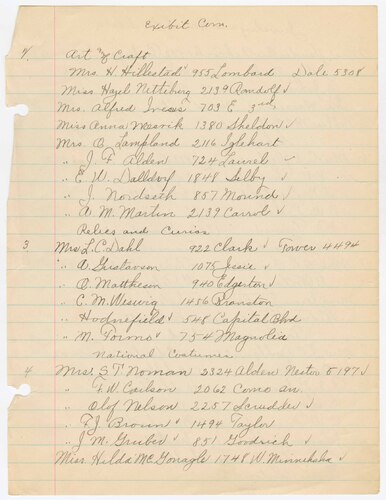 Exhibit Com.
Art & Craft
Mrs. H. Hillestad 955 Lombard Dale 5308
Miss Hazel Nitteberg 2139 Randolf ✓
Mrs. Alfred 703 E. 3rd ✓
Miss Anna 1380 Sheldon ✓
Mrs. O. Lampland 2116 Iglehart
" J. F. Alden 724 Laurel ✓
" E. W. Dalldorf 1848 Selby ✓
" J. Nordseth 857 Mound ✓
" A. M. Martin 2139 Carrol ✓
Relics and Curios
3 Mrs. L. C. Dahl 922 Clark ✓ Tower 4494
" A. Gustavson 1075 Jessie ✓
" O. Mattheson 940 Edgerton ✓
" C. M. Weswig 1456 Branston
" Hodnefield ✓ 548 Capital Blvd
" M. Tormo ✓ 754 Magnolia
National Costumes
4 Mrs. S. T. Noman 2324 Alden Nestor 5197 ✓
" F. W. Carlson 2062 Como
" Olof Nelson 2257 Scudder ✓
" F. J. Brown ✓ 1494 Taylor
" J. M. Gruber ✓ 851 Goodrich ✓
Miss Hilda McGonagle 1748 W. Minnehaha ✓